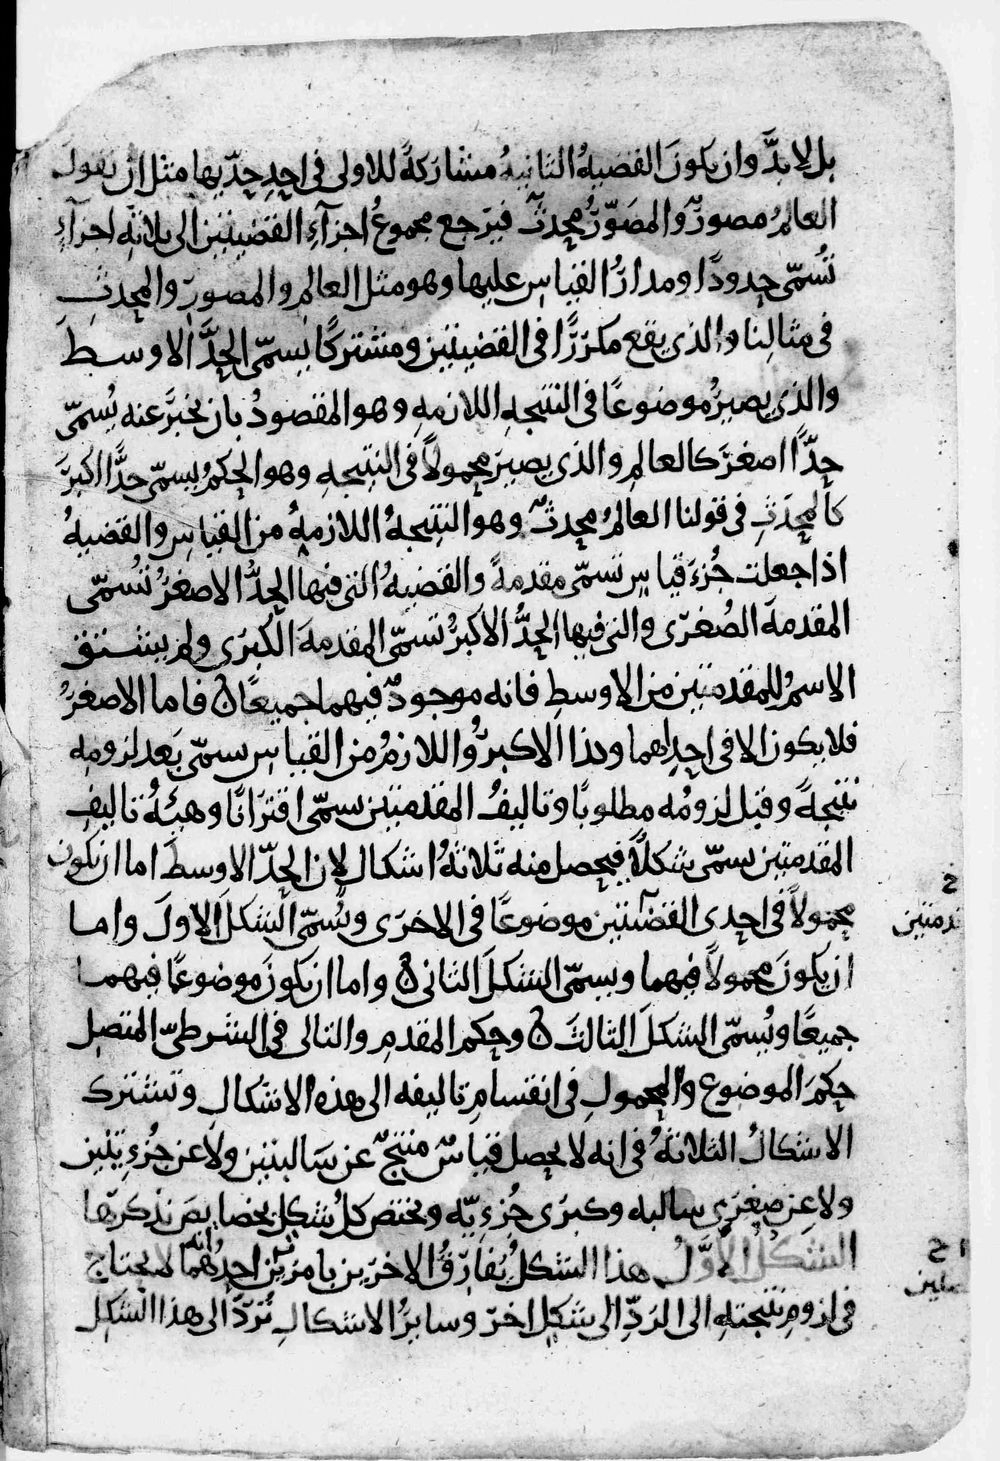 بل لا بدَّ وان يكونَ القضيهُ الثانيهُ مشارَكةً للاولى فى احدِ حدّيها مثل ان نقولَ
العالمُ مصورٌ والمصَوّرُ محدثٌ فيرَجع مجموعُ اجزآءِ القضيتين الى ثلاثةِ اجزآءٍ
تُسمّى حدودًا ومدارُ القياسِ عليها وهو مثل العالمِ والمصورِ والمحدثِ
فى مثالِنا والذى يقع مكررًا فى القضيتين ومشتركًا يسمّى الحدَّ الاوسط
والذى يصيرُ موضوعًا فى النتيجهِ اللازمهِ وهو المقصودُ بان نخبرَ عنه يُسمّى
حدًّا اصغرَ كالعالمِ والذى يصيرَ محمولاً فى النتيجهِ وهو الحكمُ يسمّى حدًّا اكبرَ
كالمحدَثِ فى قولنا العالمُ محدثٌ وهو النتيجهُ اللازمهُ من القياسِ والقضيهُ
اذا جعلت جُزءَ قياسٍ تسمّى مقدمةً والقضيهُ التى فيها الحدُّ الاصغرُ تُسمّى
المقدمةَ الصُغرَى والتى فيها الحدُّ الاكبرُ تسمّى المقدمةَ الكُبرَى ولم يشتق
الاسمُ للمقدمتين من الاوسطِ فانه موجودٌ فيهما جميعًا ۞ فاما الاصغرُ
فلا يكون الا فى احدِاهما وكذا الاكبرُ واللازمُ من القياسِ سمّى بَعد لزومِه
نتيجةً وقبل لزومُه مطلوبًا وتاليفُ المقدمتين سمّى اقترَانًا وهئةُ تاليفِ
المقدمتين سمّى شكلًا فيحصل منه ثلاثةُ اشكال لان الحدّ الاوسطَ اما ان يكون
محمولاً فى احدى القضيتين موضوعًا فى الاخرَى ويُسمّى الشكلَ الاولَ واما
ان يكونَ محمولاً فيهما ويسمّى الشكلَ الثانى ۞ واما ان يكونَ موضوعًا فيهما
جميعًا ويُسمّى الشكلَ الثالثَ ۞ وحكم المقدمِ والتالى فى الشرطىّ المتصِل
حكمَ الموضوعِ والمحمولِ فى انقسامِ تاليفه الى هذه الاشكالِ وتشترك
الاشكالُ الثلاثةُ فى انه لا يحصل قياسٌ منتجٌ عن سَالبتين ولا عن جُزءِيّتين
ولا عن صغرَى سالبه وكبرَى جُزءِيّه ويختص كلُ شكلٍ بخصايصَ نذكرُها
الشكلُ الاوَّلُ هذا الشكلُ يُفارَقُ الاخرَين بامرَين احدُهما انه لا يحتاج
فى لزومِ نتيجتهِ الى الردِّ الى شكلٍ اخرَ وسايرُ الاشكالِ تُردُّ الى هذا الشكلِ